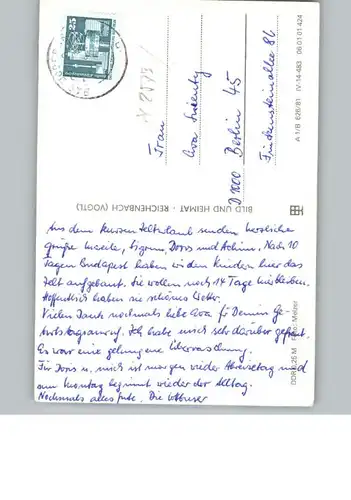 Aus dem kurzen Zelturlaub senden herzliche
Grüße Mareile, Sigrun, Doris und Achim. Nach 10
Tagen Budapest haben wir den Kindern hier das
Zelt aufgebaut. Sie wollen noch 14 Tage hierbleiben.
Hoffentlich haben sie schönes Wetter.
Vielen Dank nochmals liebe Eva f. Deinen Ge-
burtstagsanruf. Ich habe mich sehr darüber gefreut.
Es war eine gelungene Überraschung.
Für Doris u. mich ist morgen wieder Abreisetag und
am Montag beginnt wieder der Alltag.
Nochmals alles Gute. Die
Frau
Eva
D 1000 Berlin 45
Finckensteinallee 86
BILD UND HEIMAT · REICHENBACH (VOGTL)
A 1/B 626/81 IV-14-483 06 01 01 424
25